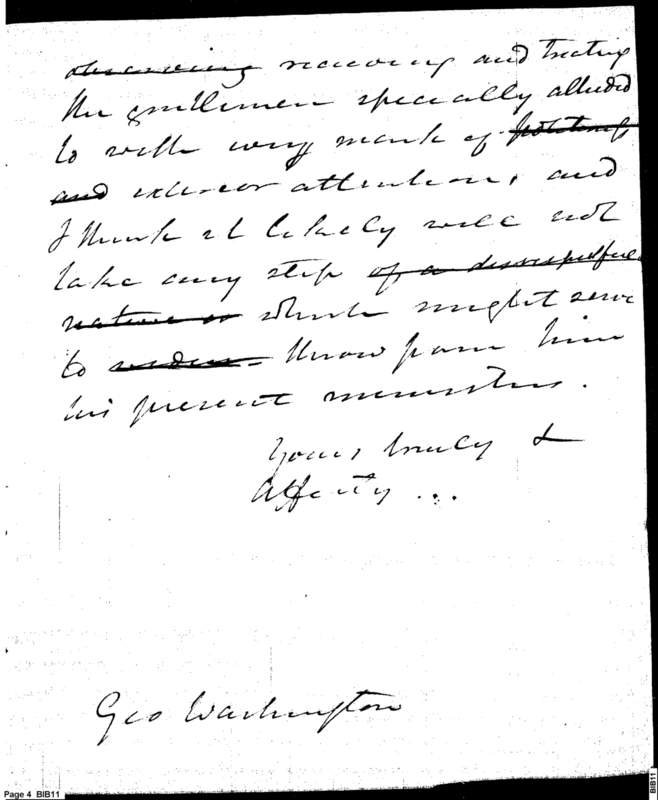 observing receiving and treating
the gentlemen specially alluded
to with every mark of politeness
and exterior attention, and
I think it likely will not
take any step of a disrespectful
nature or which might serve
to throw from him
his present ministers.
Yours truly &
Affecty ...
Geo Washington
Page 4 BIB11
BIB11